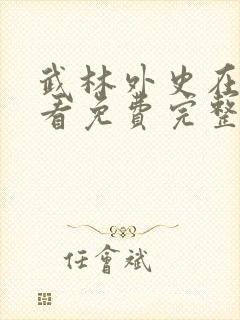 武林外史在
看免费完整
任會斌